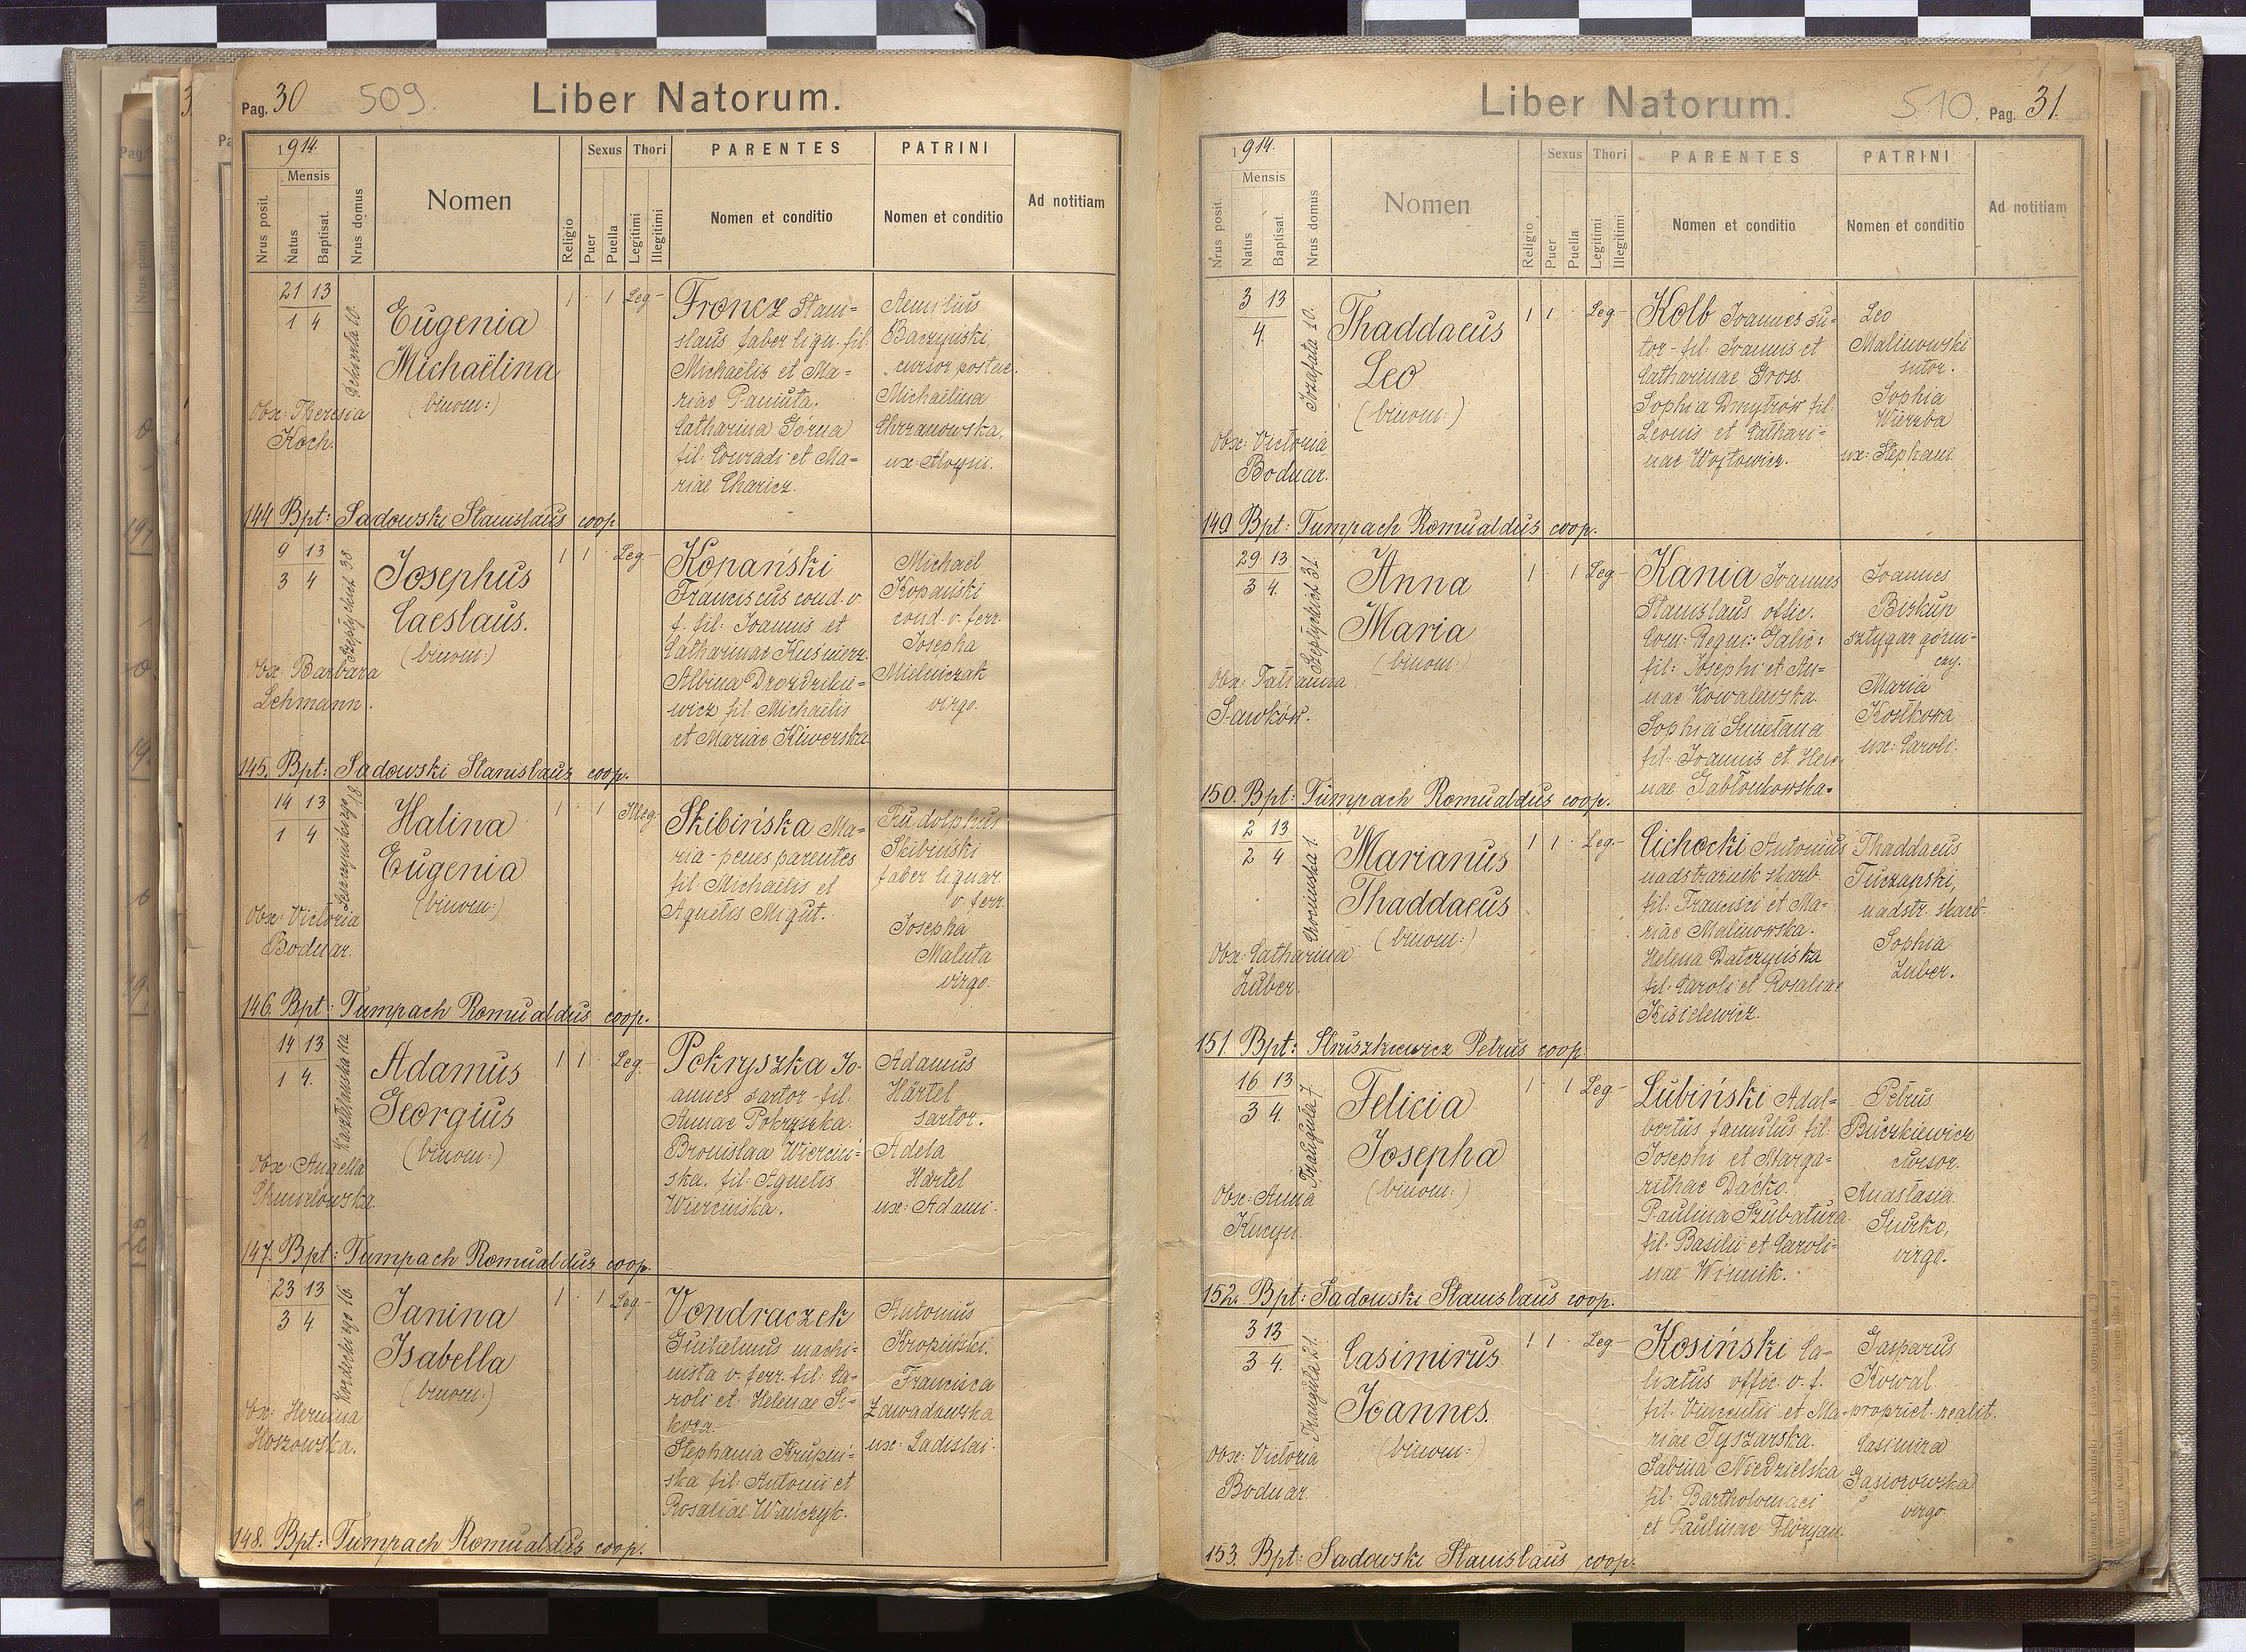 Pag. 30 509. Liber Natorum.
1914.
Mensis
Nrus posit.
Natus
Baptisat.
Nrus domus
Nomen
Religio
Sexus
Puer
Puella
Thori
Legitimi
Illegitimi
PARENTES
Nomen et conditio
PATRINI
Nomen et conditio
Ad notitiam
21 13
1 4
Eugenia
Michaëlina
(binom:)
Obx: Theresia
Koch.
1 · 1 Leg-
Froncz Stani=
slaus faber lign. fil.
Michaëlis et Ma=
riae Pamuta.
Catharina Górna
fil: Conradi et Ma=
riae Charicz.
Aemilius
Baczyński,
cursor postae.
Michaëlina
Chrzanowska,
ux: Aloysii.
144 Bpt: Sadowski Stanislaus coop.
9 13
3 4
Szeptyckich 38.
Josephus
Caeslaus.
(binom:)
Obx: Barbara
Lehmann.
1 1 · Leg-
Kopański
Franciscus cond. v.
f. fil: Joannis et
Catharinae Kuśnierz.
Albina Drozdzike=
wicz fil: Michaëlis
et Mariae Kiwerska
Michaël
Kopański
cond. v. ferr.
Josepha
Mielniczak
virgo.
145. Bpt: Sadowski Stanislaus coop.
14 13
1 4
Leszczyńskiego 18.
Halina
Eugenia
(binom:)
Obx: Victoria
Bodnar.
1 · 1 Illeg-
Skibińska Ma=
ria - penes parentes
fil: Michaëlis et
Agnetis Migut.
Rudolphus
Skibinski
faber lignar.
v. ferr.
Josepha
Maluta
virgo.
146. Bpt: Tumpach Romualdus coop.
14 13
1 4.
Adamus
Georgius
(binom:)
Obx: Angella
Chmielowska.
1 1 · Leg-
Pokryszka Jo-
annes sartor - fil.
Annae Pokryszka.
Bronislaa Wierciń=
ska. fil: Agnetis
Wiercińska.
Adamus
Härtel
sartor.
Adela
Härtel
ux: Adami.
147. Bpt: Tumpach Romualdus coop.
23 13
3 4
Kordeckiego 16.
Janina
Isabella
(binom:)
Obx: Hermina
Hoszowska.
1 · 1 Leg-
Vondraczek
Guilielmus machi=
nista v. ferr. fil: Ca=
roli et Helenae Si=
kora.
Stephania Krupiń=
ska fil: Antonii et
Rosaliae Wańczyk.
Antonius
Kropiński.
Francisca
Zawadowska
ux: Ladislai.
148. Bpt: Tumpach Romualdus coop.
Liber Natorum. 510. Pag. 31.
1914.
Mensis
Nrus posit.
Natus
Baptisat.
Nrus domus
Nomen
Religio
Sexus
Puer
Puella
Thori
Legitimi
Illegitimi
PARENTES
Nomen et conditio
PATRINI
Nomen et conditio
Ad notitiam
3 13
4.
Jozafata 10.
Thaddaeus
Leo
(binom:)
Obx: Victoria
Bodnar.
1 1 · Leg-
Kolb Joannes su=
tor - fil: Joannis et
Catharinae Gross.
Sophia Dmytrów fil:
Leonis et Cathari=
nae Wojtowicz.
Leo
Malinowski
sutor.
Sophia
Wierzba
ux: Stephani
149. Bpt: Tumpach Romualdus coop.
29 13
3 4.
Szeptyckich 31.
Anna
Maria
(binom:)
Obx: Tatianna
Sawków.
1 · 1 Leg-
Kania Joannes
Stanislaus offic.
Com: Regni: Galic:
fil: Josephi et An=
nae Kowalewska.
Sophia Smietana
fil: Joannis et Hele=
nae Jabłonkowska.
Joannes
Birkup
sztygar górni=
czy.
Maria
Kostkowa
ux: Caroli.
150. Bpt: Tumpach Romualdus coop.
2 13
2 4
Chocimska 1.
Marianus
Thaddaeus
(binom:)
Obx: Catharina
Huber.
1 1 · Leg-
Cichocki Antonius
nadstrażnik skarb.
fil: Francisci et Ma=
riae Malinowska.
Helena Datczyńska
fil: Caroli et Rosaliae
Kisielewicz.
Thaddaeus
Tuczapski,
nadstr. skarb.
Sophia
Huber.
151. Bpt: Struszkiewicz Petrus coop.
16 13
3 4.
Traugutta 7.
Felicia
Josepha
(binom:)
Obx: Anna
1 · 1 Leg-
Lubiński Adal=
bertus famulus fil:
Josephi et Marga=
rithae Dacko.
Paulina Szubatura
fil: Basilii et Caroli=
nae Winnik.
Petrus
Buczkiewicz
cursor.
Anastasia
Surko,
virgo.
152. Bpt: Sadowski Stanislaus coop.
3 13
3 4.
Traugutta 21.
Casimirus
Joannes.
(binom:)
Obx: Victoria
Bodnar.
1 1 · Leg-
Kosiński Ca=
lixtus offic. v. f.
fil: Vincentii et Ma=
riae Tyszarska.
Sabina Niedzielska
fil: Bartholomaei
et Paulinae Floryan.
Gasparus
Kowal
propriet. realit.
Casimira
Gąsiorowska
virgo.
153. Bpt: Sadowski Stanislaus coop.